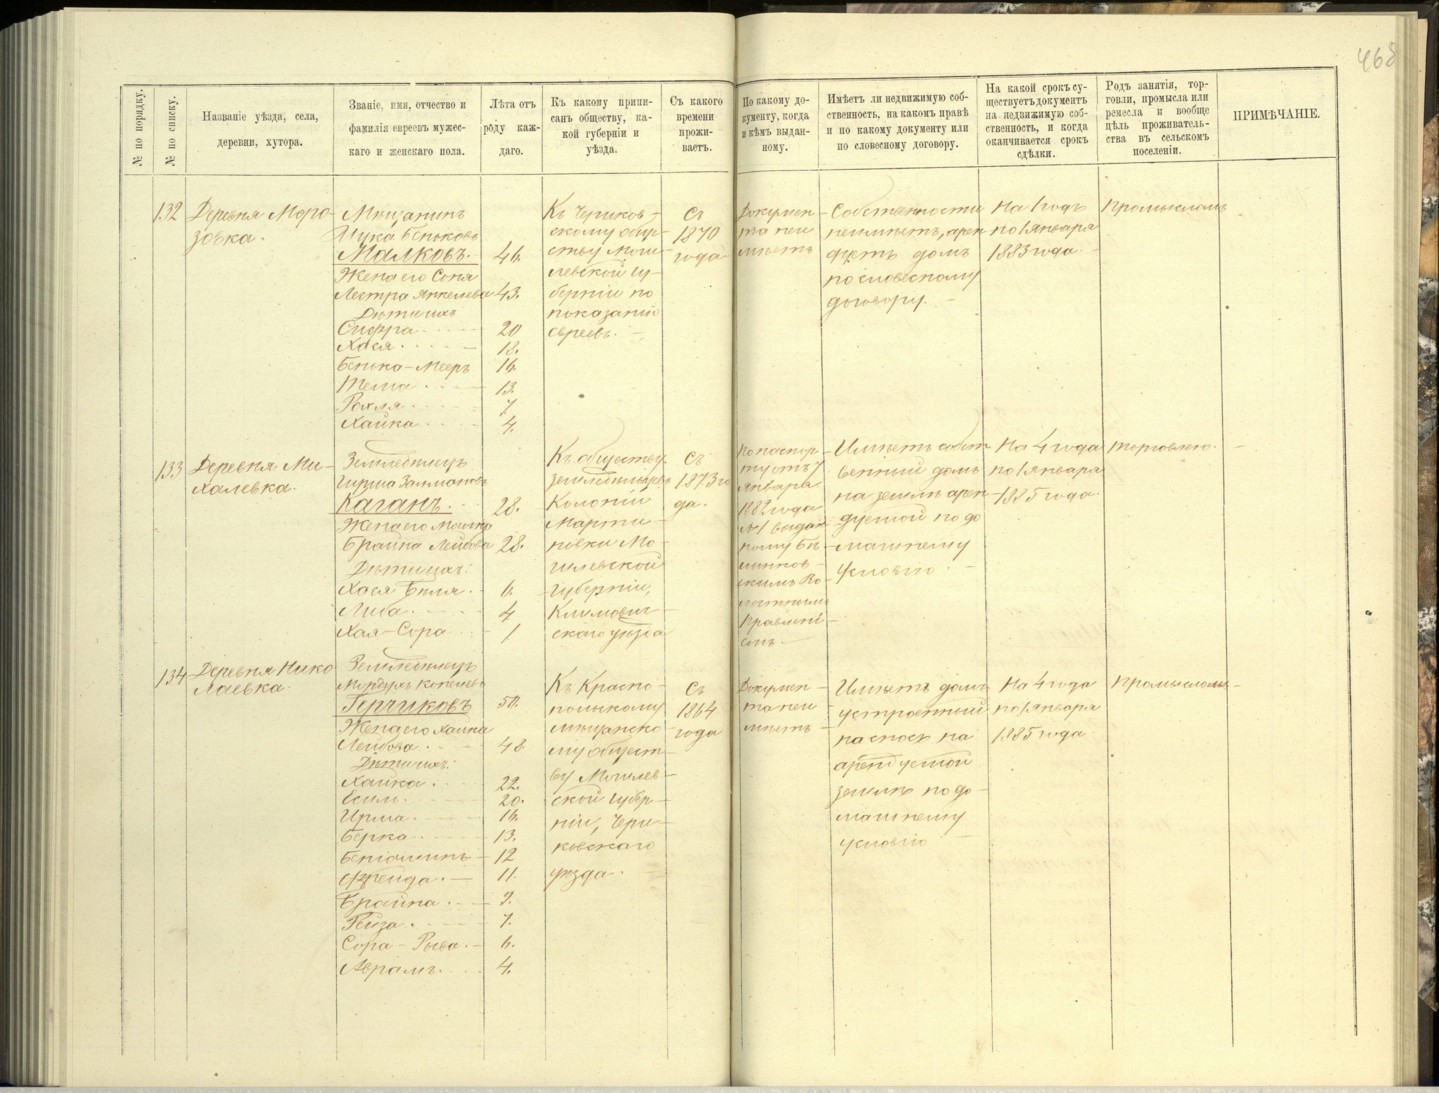 468
№ по порядку.
№ по списку.
Названіе уѣзда, села,
деревни, хутора.
Званіе, имя, отчество и
фамилія евреевъ мужес-
каго и женскаго пола.
Лѣта отъ
роду каж-
даго.
Къ какому припи-
санъ обществу, ка-
кой губерніи и
уѣзда.
Съ какого
времени
прожи-
ваетъ.
По какому до-
кументу, когда
и кѣмъ выдан-
ному.
Имѣетъ ли недвижимую соб-
ственность, на какомъ правѣ
и по какому документу или
по словесному договору.
На какой срокъ су-
ществуетъ документъ
на недвижимую соб-
ственность, и когда
оканчивается срокъ
сдѣлки.
Родъ занятія, тор-
говли, промысла или
ремесла и вообще
цѣль проживатель-
ства въ сельском
поселеніи.
ПРИМѢЧАНІЕ.
132
Деревня Моро-
зовка.
Мѣщанинъ
Беньковъ
Малковъ. 46.
Жена его Соня
Янкелева 43.
Дѣти ихъ
20
Хася 18.
Бенька-Мееръ 16.
13.
Рохля 7
Хайка 4.
Къ Чериков-
скому обще-
ству Моги-
левской гу-
берніи по
показанію
евреевъ.
Съ
1870
года
Докумен-
та неи
мѣетъ
Собственности
неимѣетъ, арен-
дуетъ домъ
по словесному
договору.
На 1 годъ
по 1 января
1883 года
Промысломъ
133
Деревня Ми-
халевка.
Земледѣлецъ
Гирша Залмановъ
Каганъ. 28.
Жена его
Брайна Лейбова 28.
Дѣти ихъ:
Хася Бейля. 6.
Либа. 4
Хая-Сора 1
Къ обществу
земледѣльцевъ
Колоніи
Марти-
новки Мо-
гилевской
губерніи,
Климович-
скаго уѣзда
Съ
1873 го
да.
По паспор-
ту отъ 7
Января
1882 года
№ 1 выдан-
ному Бѣ-
линков-
скимъ Во-
лостнымъ
Правлені-
емъ.
Имѣетъ собст-
венный домъ
на землѣ арен-
дуемой по до-
машнему
условію.
На 4 года
по 1 января
1885 года.
Торговлею.
134
Деревня Нико
лаевка.
Земледѣлецъ
Мордухъ Копелевъ
Герчиковъ 50.
Жена его Хайка
Лейбова 48
Дѣти ихъ:
Хайка. 22.
20.
Ирма 16.
Берка 13.
Беніоминъ 12
Френда. 11.
Брайна. 9.
Рейза. 7.
Сора-Рыва. 6.
Аврамъ. 4.
Къ Красно-
польскому
мѣщанско-
му общест-
ву Могилев-
ской губер-
ніи, Чери-
ковскаго
уѣзда.
Съ
1864
года
Докумен-
та неи
мѣетъ
Имѣетъ домъ
устроенный
на сносъ на
арендуемой
землѣ по до-
машнему
условію
На 4 года
по 1 января
1885 года
Промысломъ